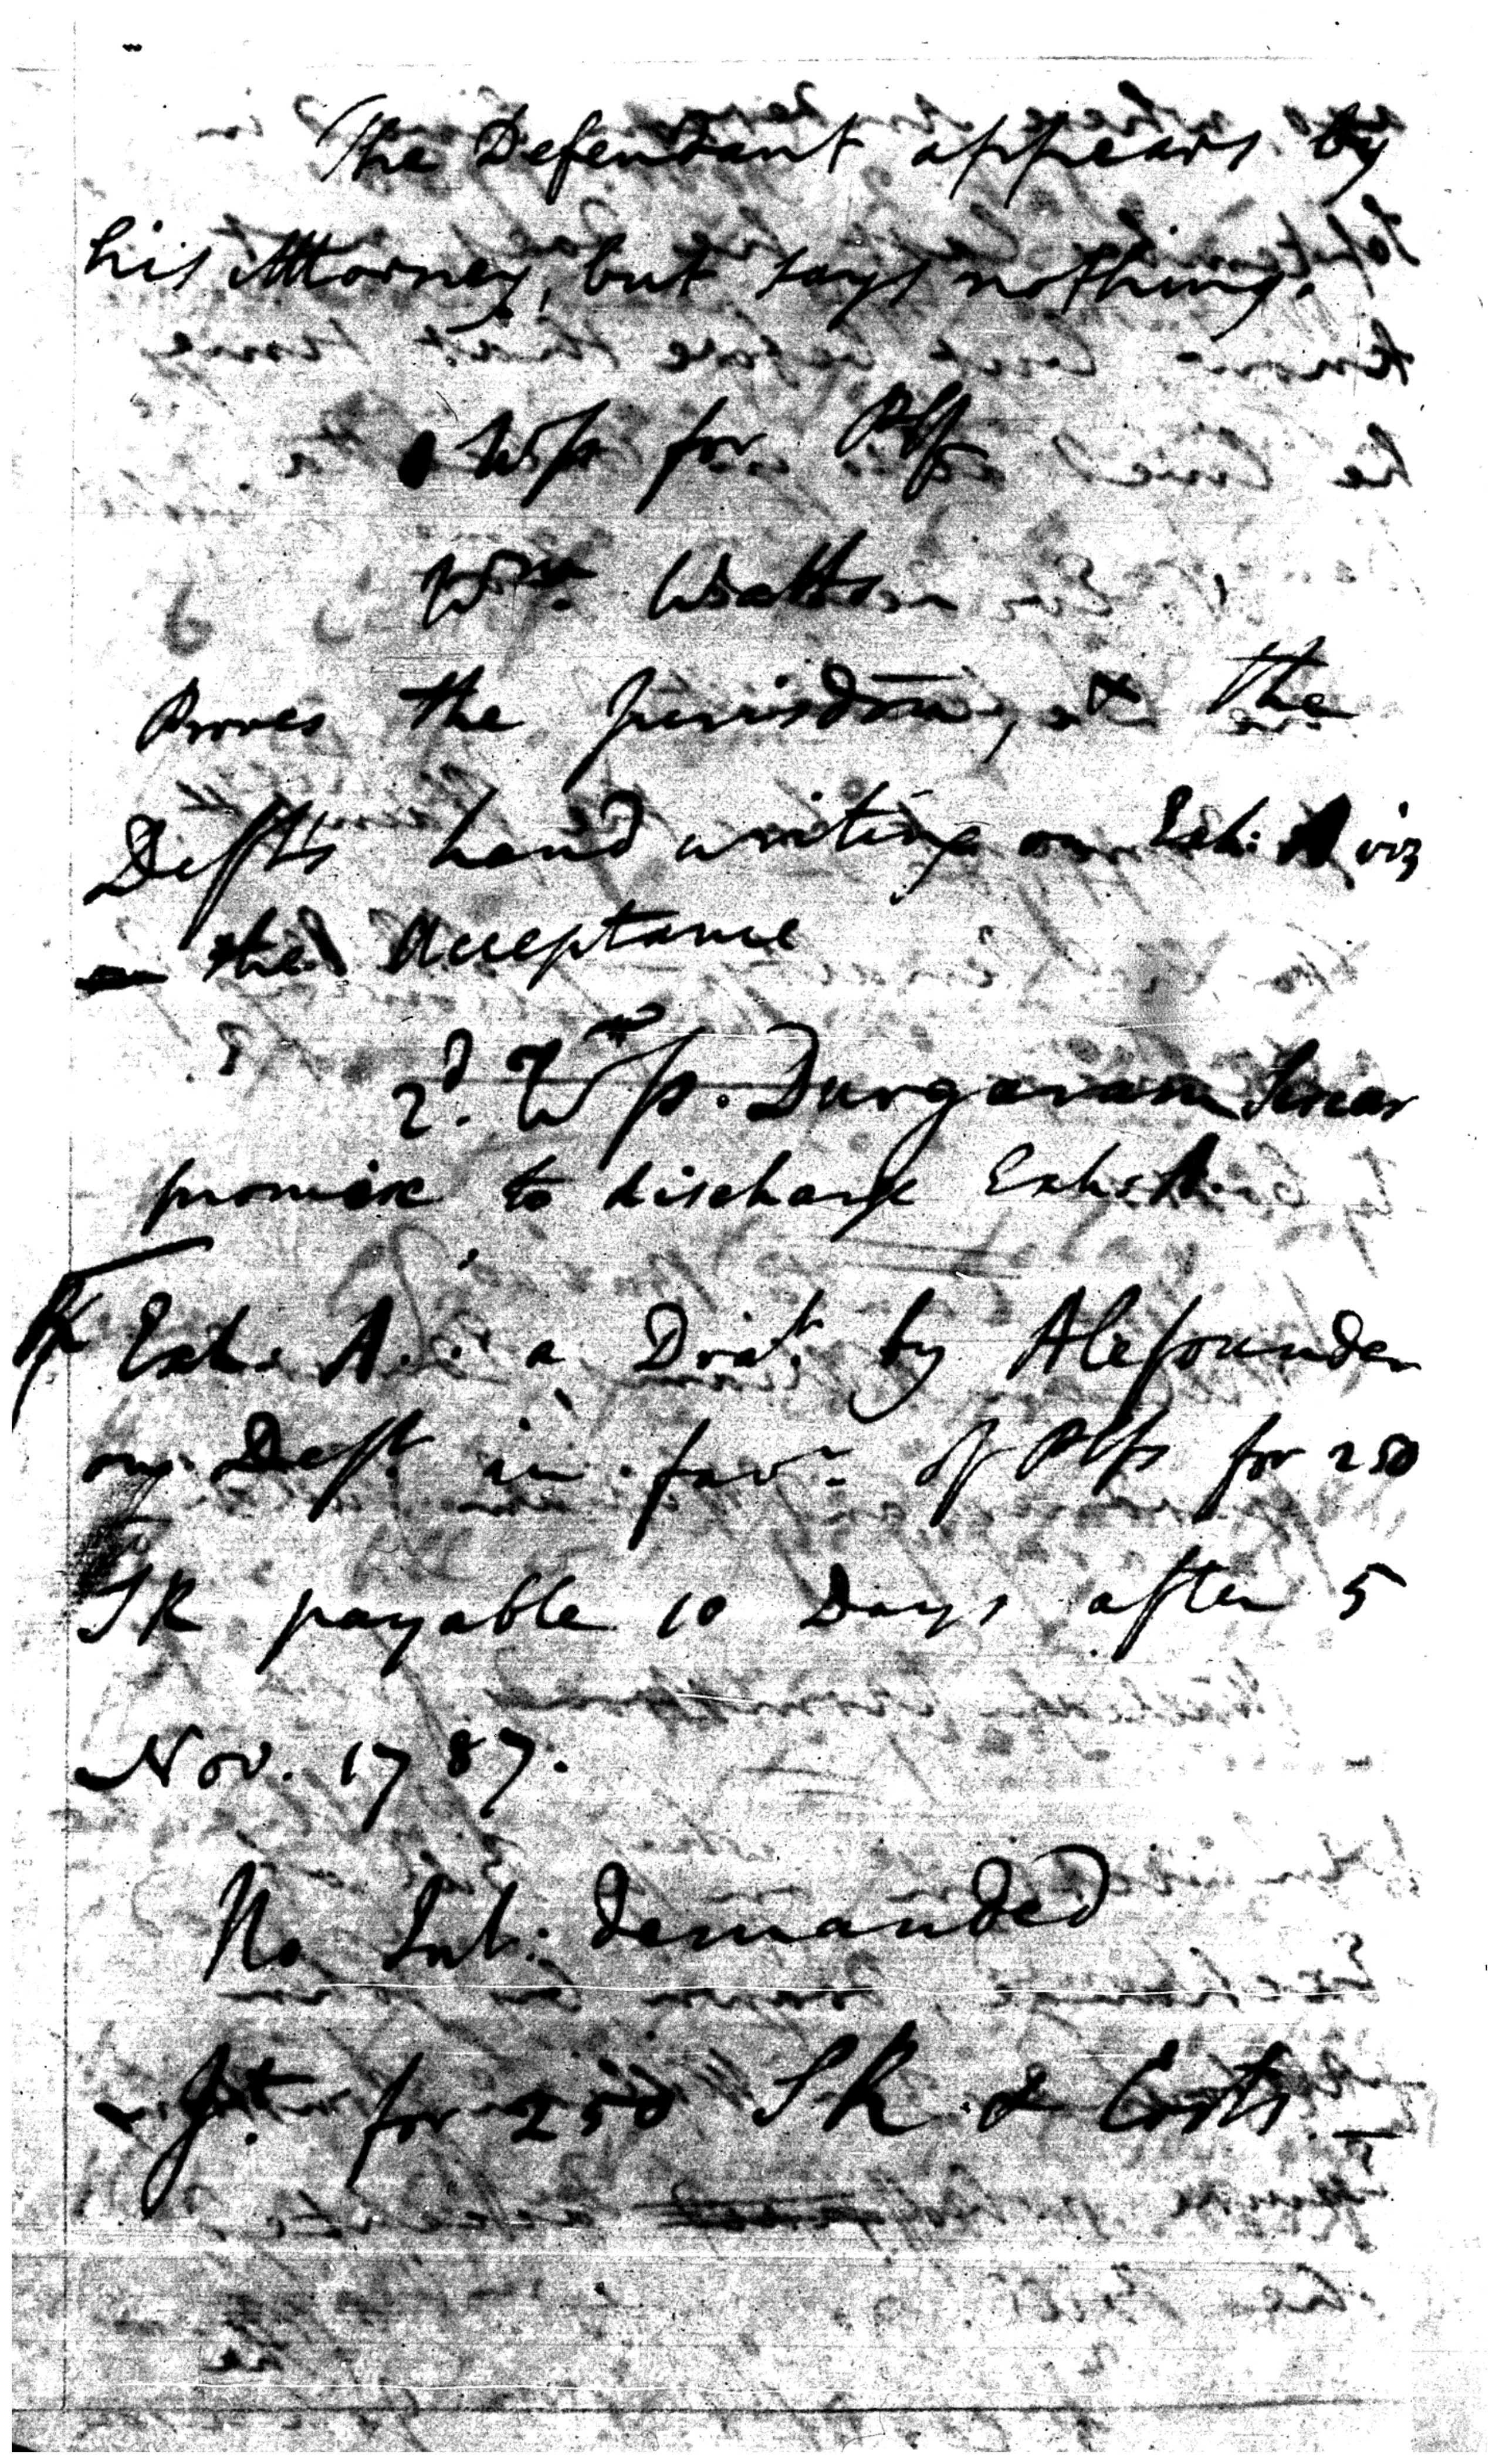 The Defendant appears by
his Attorney, but says nothing.
Wss for Plff
Wm. Watts
Proves the Jurisdcon, & the
Defts hand writing on Exh: A viz
the Acceptance
2d. Wss. Durgaram Sircar
promise to discharge Exh: A.
Exh. A. a Drat. by Alefounder
on Deft in favr. of Plfs for 250
SR payable 10 Days after 5
Nov. 1787.
No Int: demanded
Jt. for 250 SR. & Costs. —